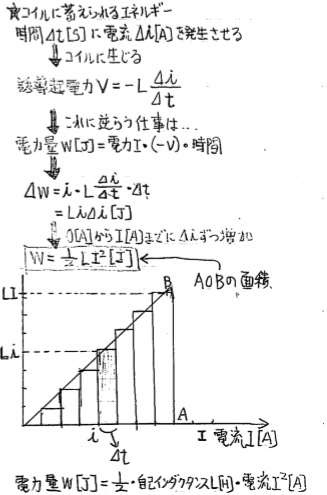 ☆コイルに蓄えられるエネルギー
時間Δt[S]に電流Δi[A]を発生させる
コイルに生じる
誘導起電力V=-L Δi/Δt
これに逆らう仕事は…
電力量W[J]=電力I・(-V)・時間
ΔW=i・L Δi/Δt・Δt
=LiΔi[J]
0[A]からI[A]までにΔiずつ増加
W=½LI²[J]
AOBの面積
LI
B
Li
A
i
Δt
I 電流I[A]
電力量W[J]=½・自己インダクタンスL[H]・電流I²[A]